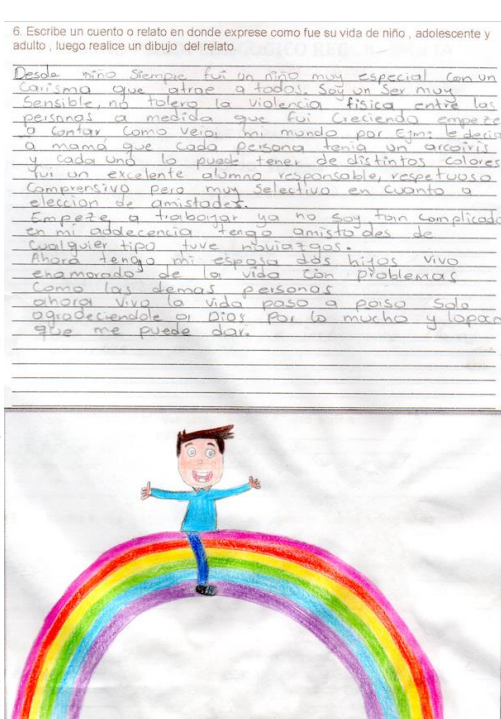 6. Escribe un cuento o relato en donde exprese como fue su vida de niño , adolescente y
adulto , luego realice un dibujo del relato.
Desde niño siempre fui un niño muy especial con un
carisma que atrae a todos. Soy un ser muy
sensible, no tolero la violencia física entre las
personas a medida que fui creciendo empeze
a contar como veia mi mundo por Ejm: le decia
a mamá que cada persona tenia un arcoiris
y cada uno lo puede tener de distintos colores
fui un excelente alumno responsable, respetuoso
comprensivo pero muy selectivo en cuanto a
elección de amistades.
Empeze a trabajar ya no soy tan complicado
en mi adolecencia tengo amistades de
cualquier tipo tuve noviazgos.
Ahora tengo mi esposa dos hijos vivo
enamorado de la vida con problemas
como las demas personas
ahora vivo la vida paso a paso solo
agradeciendole a Dios por lo mucho y lopoco
que me puede dar.